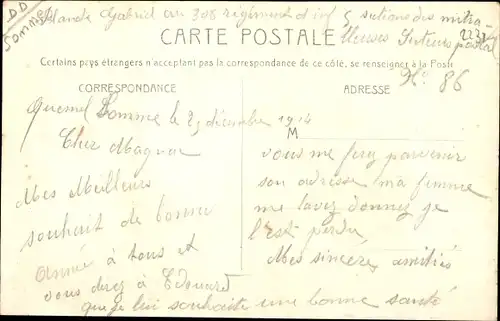 DD
Somme
Gabriel au 308 régiment d'inf 5 sections des mitra-
lleuses Secteur postal
CARTE POSTALE
No. 86
Certains pays étrangers n'acceptent pas la correspondance de ce côté, se renseigner à la Poste
CORRESPONDANCE
ADRESSE
Quesnel Somme le 23 décembre 1914
M
Cher Magnac
Mes Meilleurs
souhait de bonne
Année à tous et
vous direz à Edouard
que je lui souhaite une bonne santé
vous me ferez parvenir
son adresse ma femme
me l'avez donnez je
l'est perdu
Mes sincères amitiés